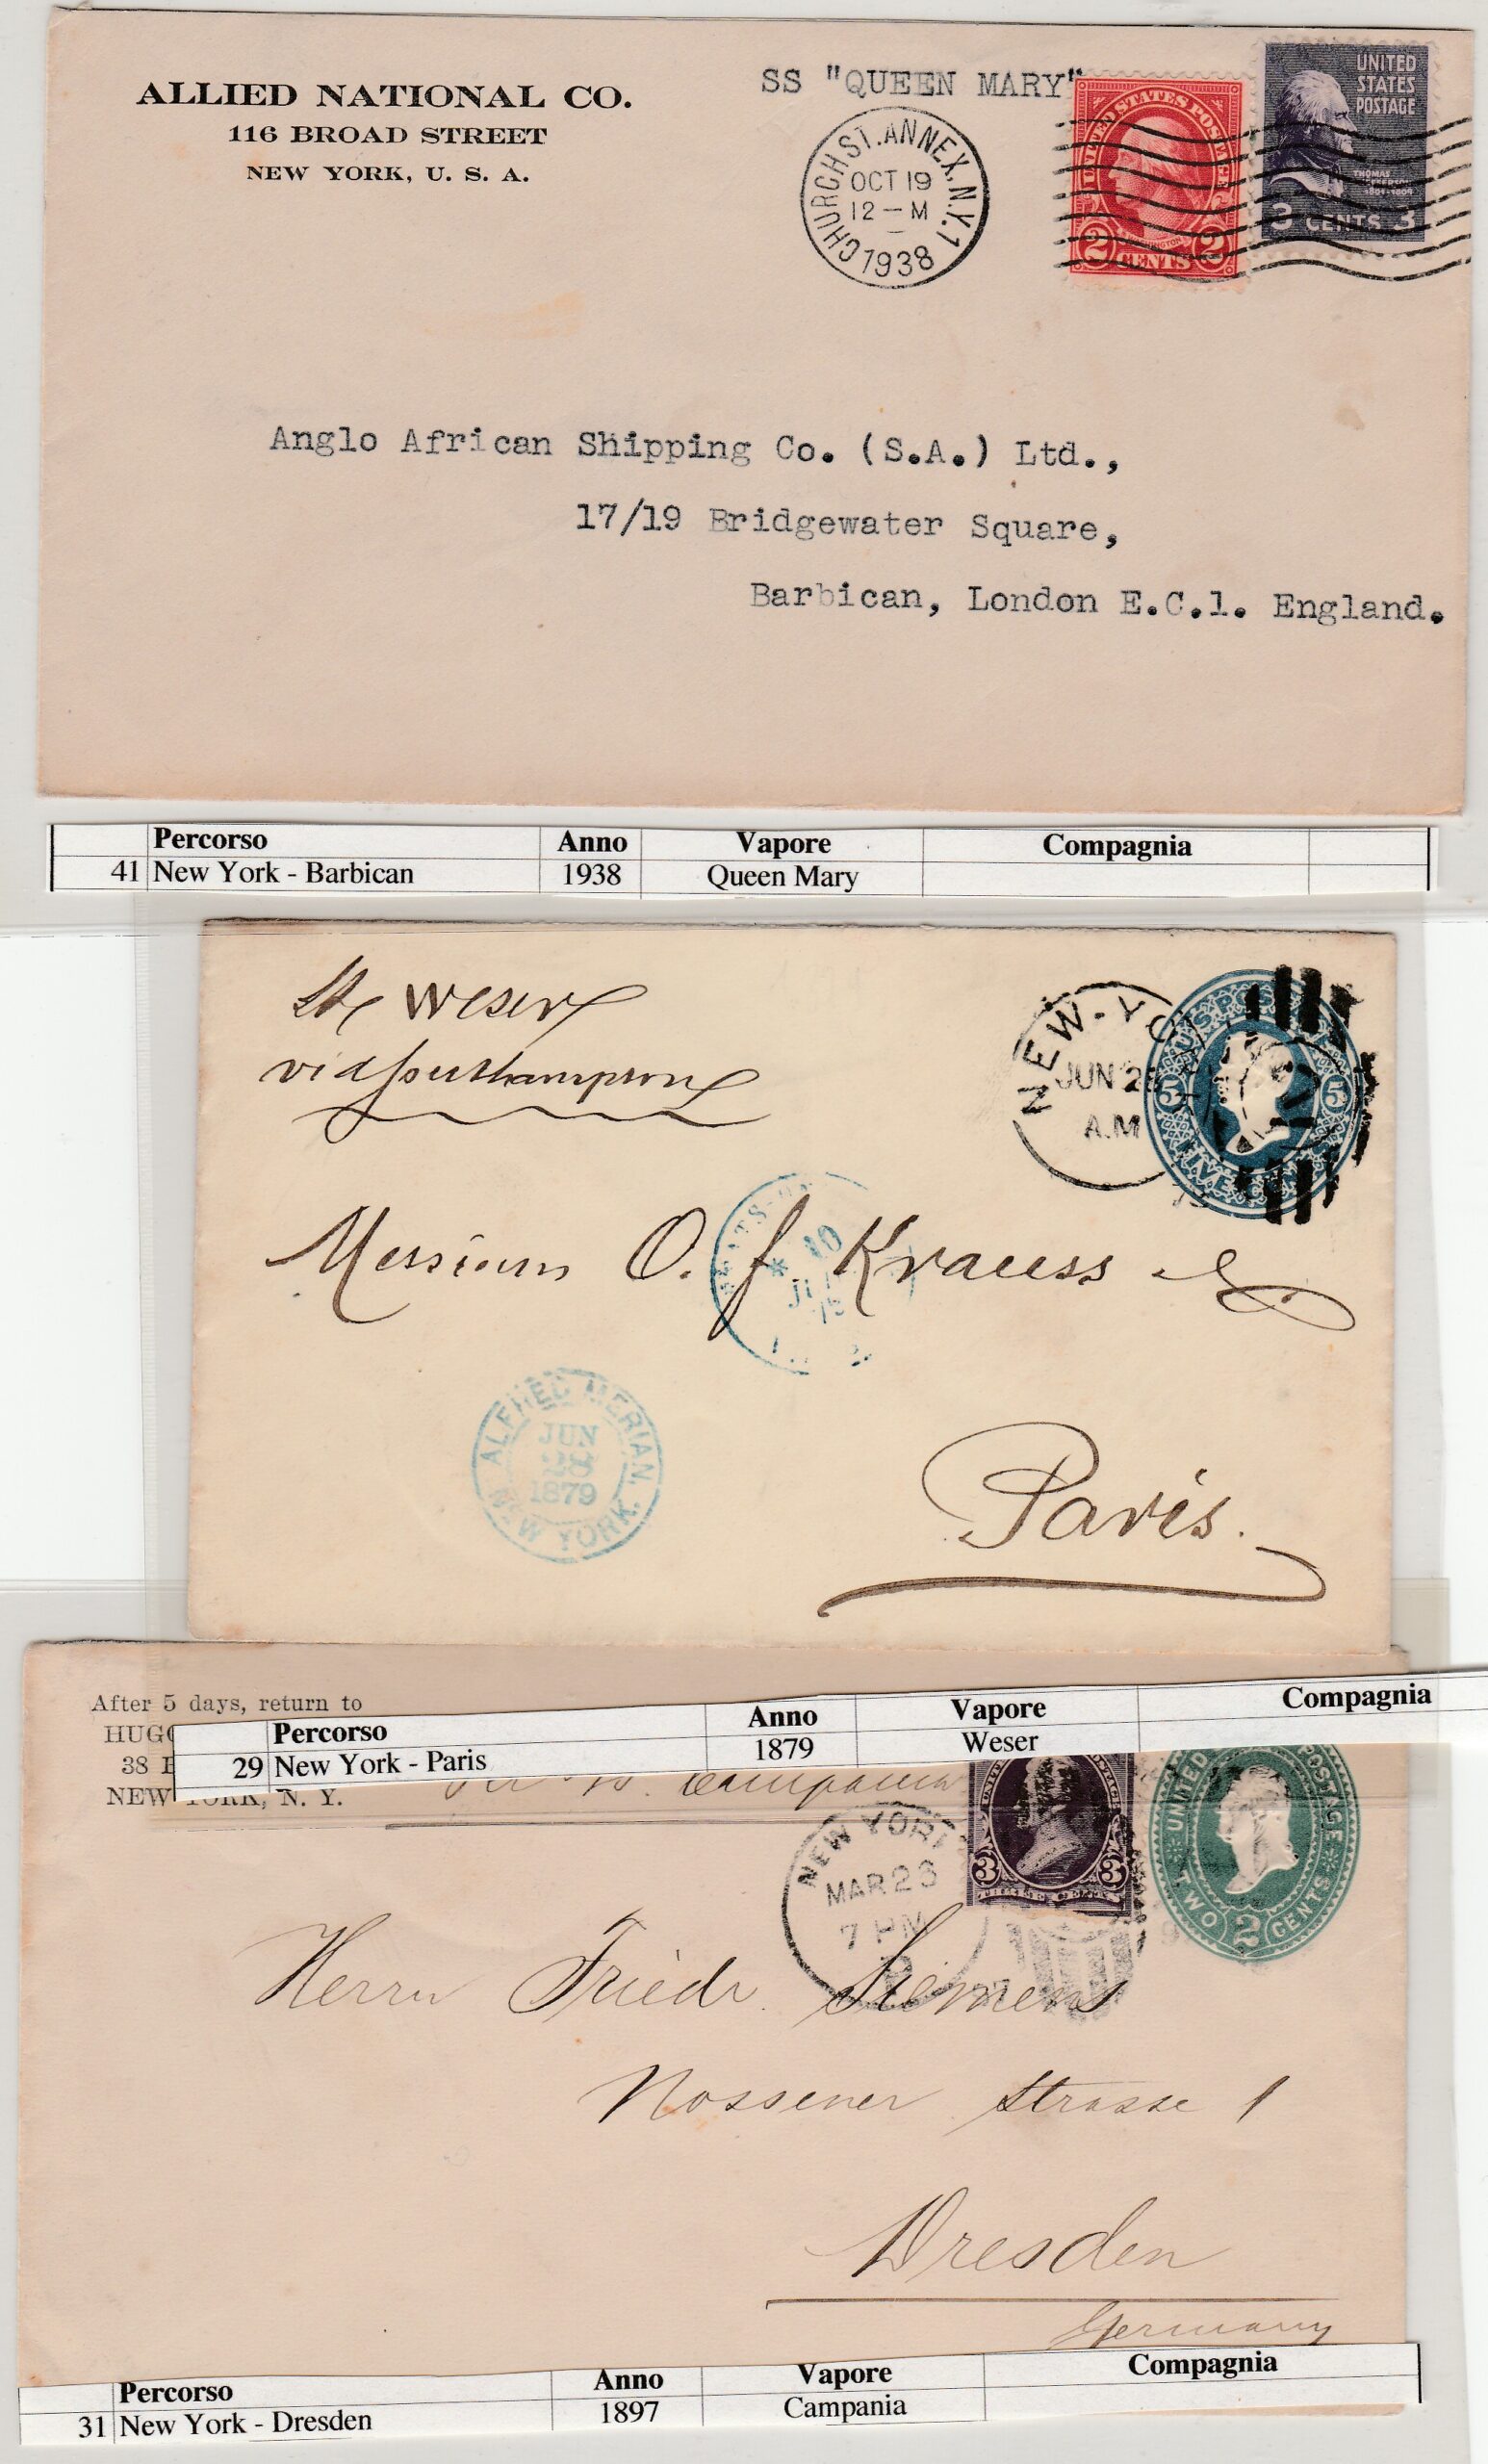 ALLIED NATIONAL CO.
116 BROAD STREET
NEW YORK, U. S. A.
SS "QUEEN MARY"
CHURCH ST. ANNEX, N.Y. 1
OCT 19
12 - M
1938
UNITED STATES POSTAGE
WASHINGTON
2 CENTS 2
UNITED
STATES
POSTAGE
THOMAS
JEFFERSON
1801-1809
3 CENTS 3
Anglo African Shipping Co. (S.A.) Ltd.,
17/19 Bridgewater Square,
Barbican, London E.C.1. England.
Percorso Anno Vapore Compagnia
41 New York - Barbican 1938 Queen Mary
Weser
via Southampton
NEW-YO
JUN 28
A.M
U.S. POST
5 5
FIVE
Messieurs O. J. Krauss &
10
ALFRED MERIAN,
JUN
28
1879
NEW YORK.
Paris.
After 5 days, return to
HUG
38
NEW YORK, N. Y.
Percorso Anno Vapore Compagnia
29 New York - Paris 1879 Weser
Campania
NEW YORK
MAR 23
7 PM
3 3
UNITED POSTAGE
TWO 2 CENTS
Herrn Friedr. Siemens
Nossener Strasse 1
Dresden
Germany
Percorso Anno Vapore Compagnia
31 New York - Dresden 1897 Campania